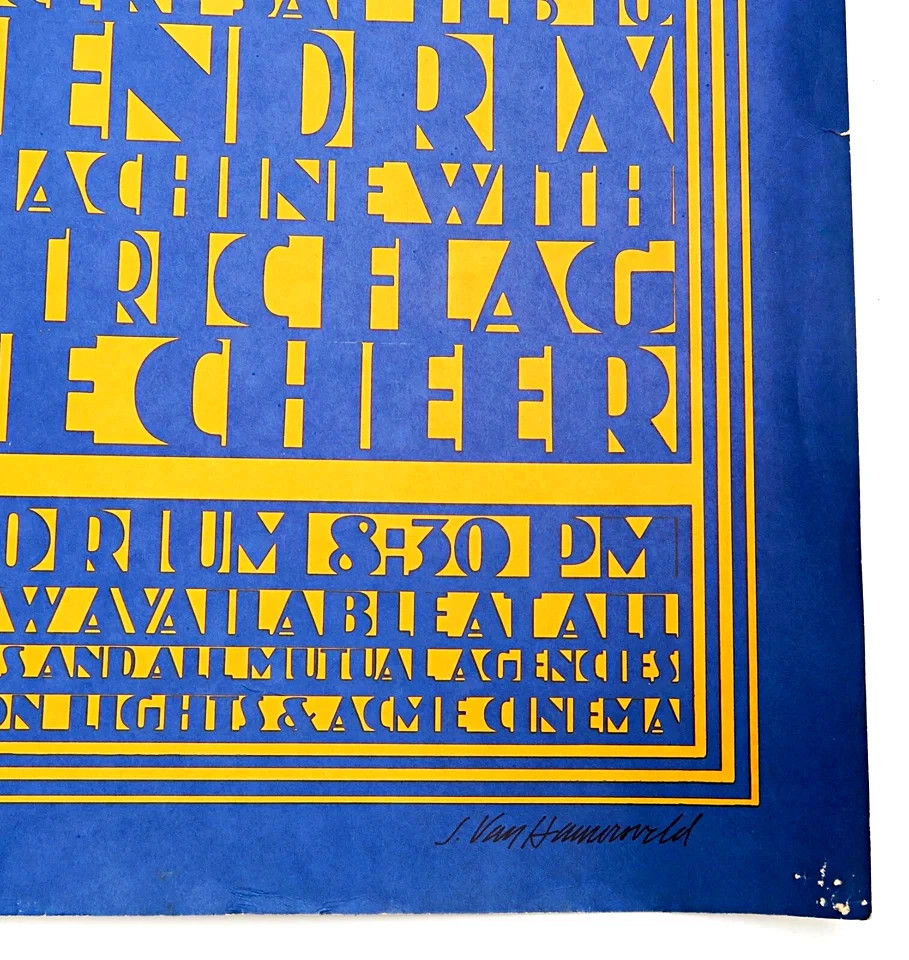 ENDRIX
ACHINE WITH
TRIC FLAG
E CHEER
ORIUM 8:30 PM
W AVAILABLE AT ALL
S AND ALL MUTUAL AGENCIES
ON LIGHTS & ACME CINEMA
J. Van Hamersveld